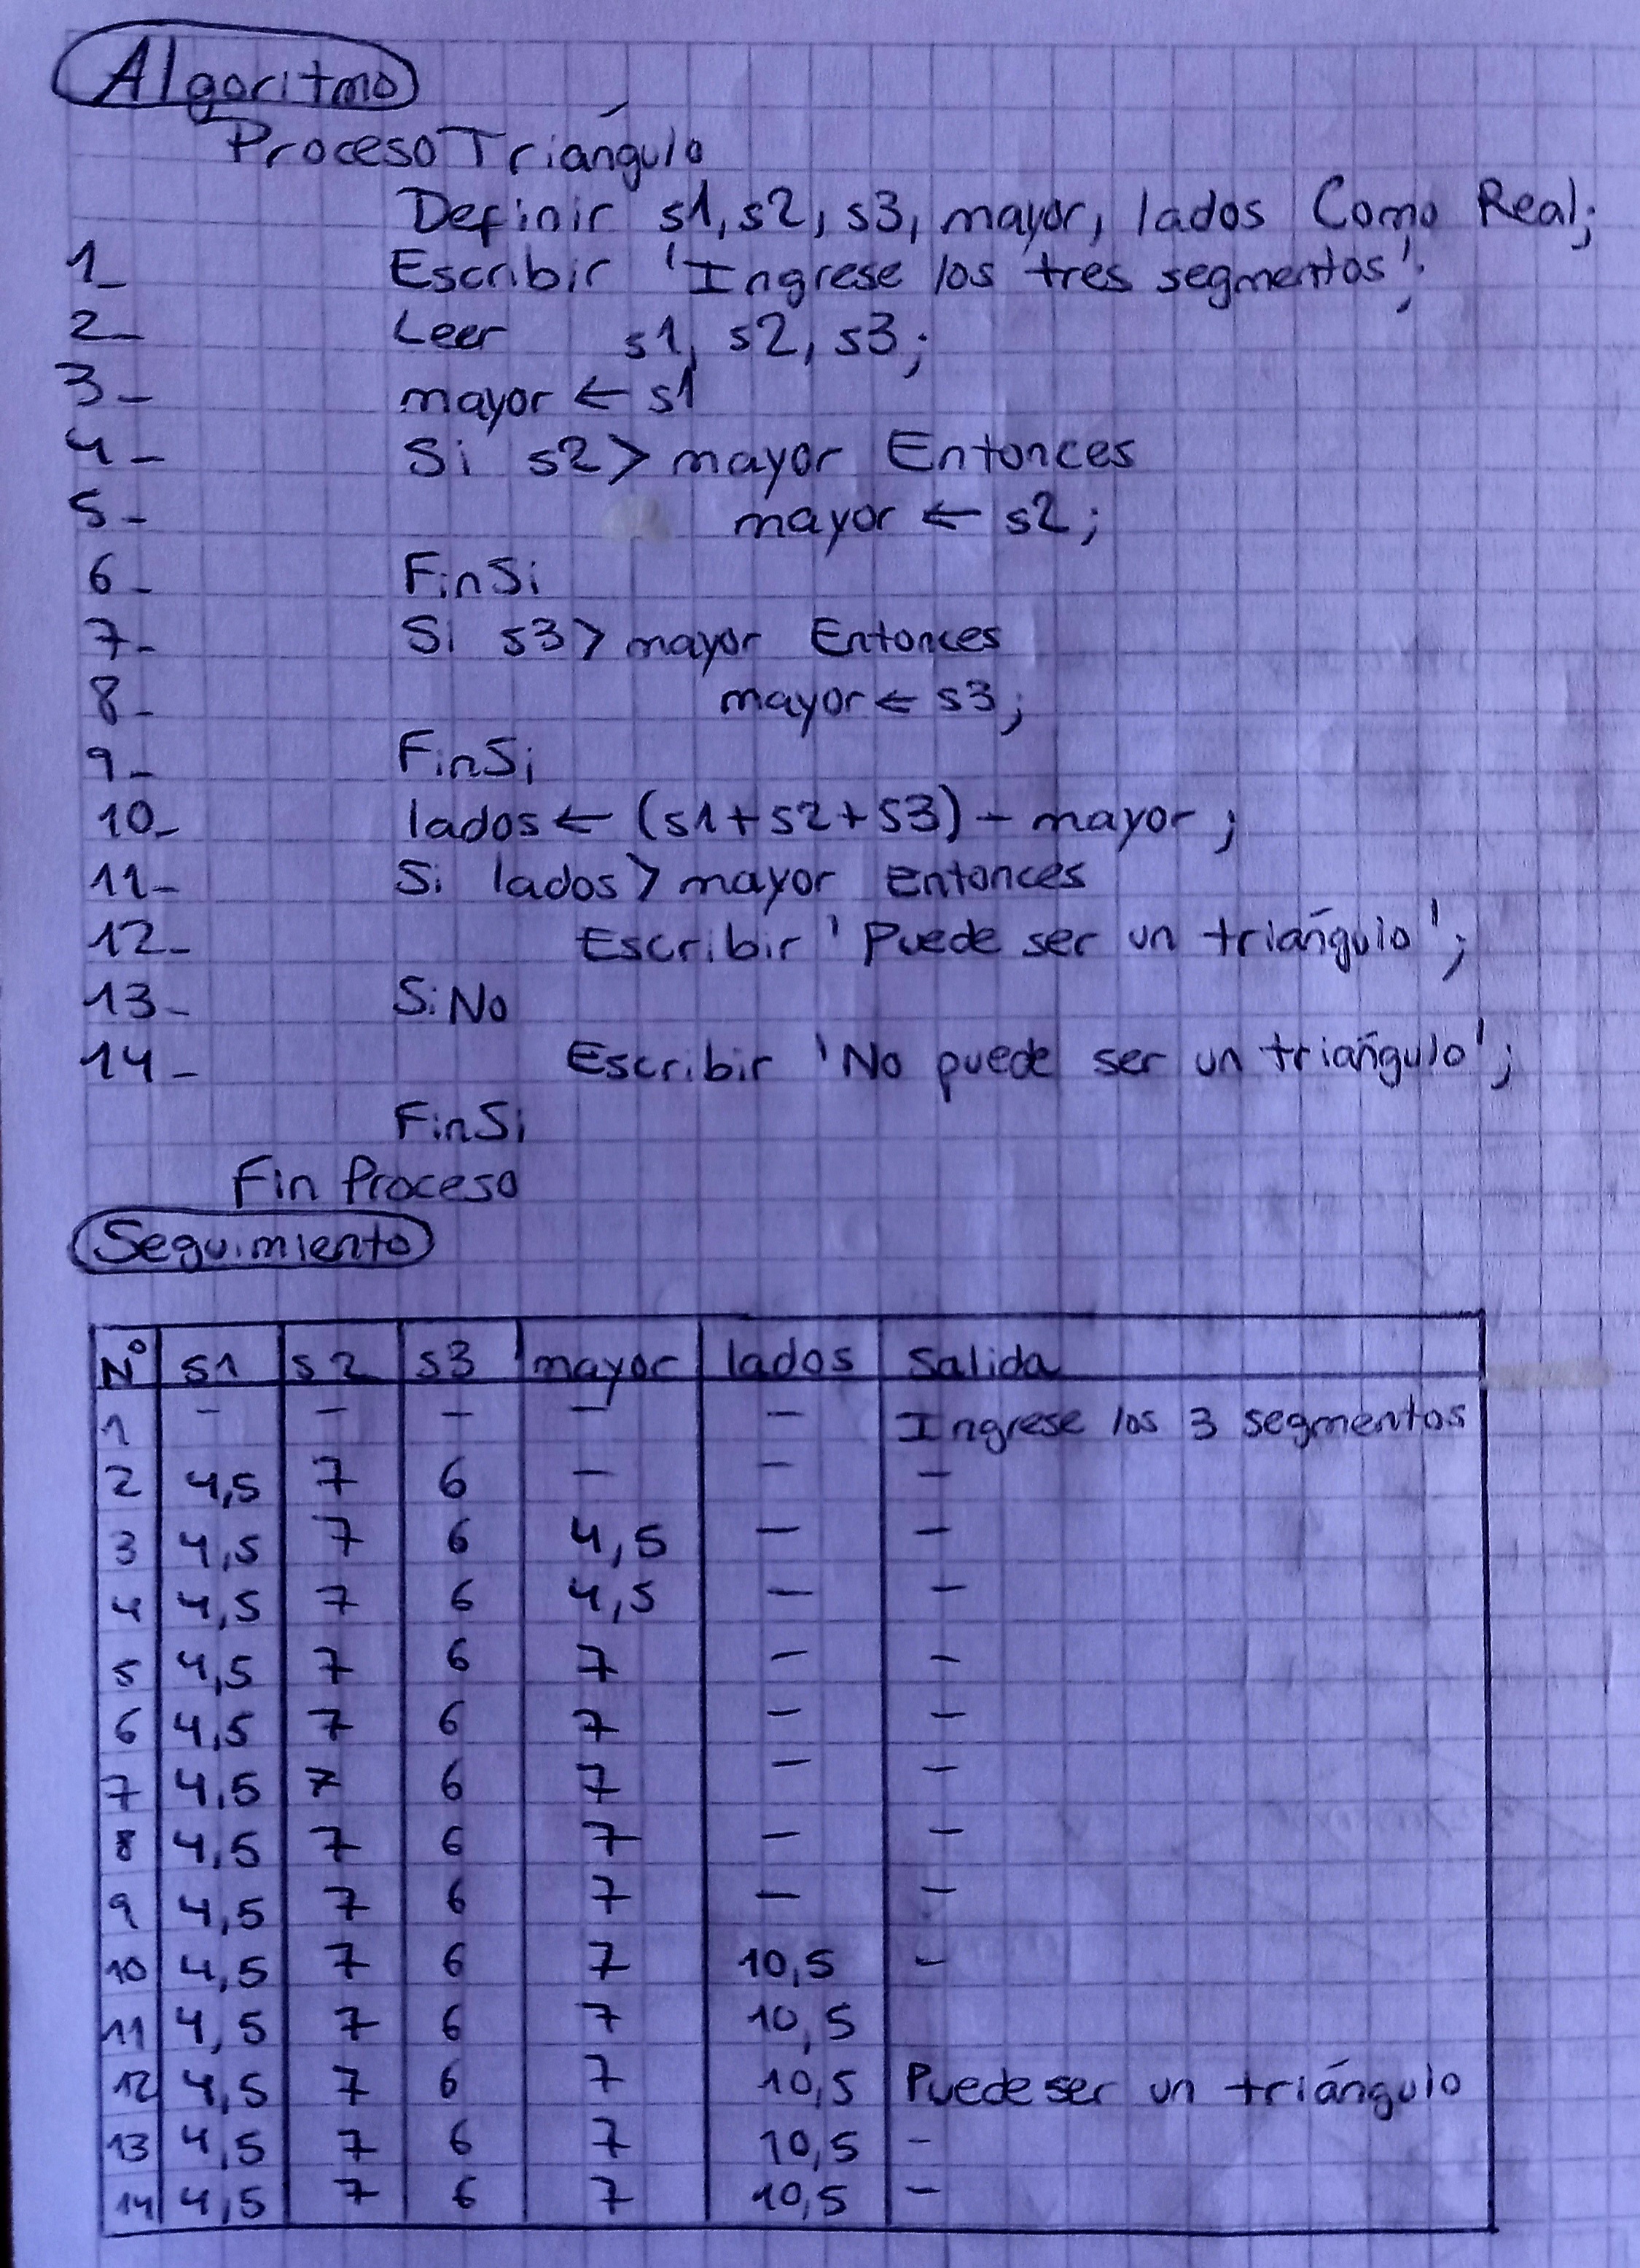 Algoritmo
Proceso Triángulo
Definir s1, s2, s3, mayor, lados Como Real;
1_ Escribir 'Ingrese los tres segmentos';
2_ Leer s1, s2, s3;
3_ mayor ← s1
4_ Si s2 > mayor Entonces
5_ mayor ← s2;
6_ FinSi
7_ Si s3 > mayor Entonces
8_ mayor ← s3;
9_ FinSi
10_ lados ← (s1+s2+s3) - mayor;
11_ Si lados > mayor entonces
12_ Escribir 'Puede ser un triángulo';
13_ SiNo
14_ Escribir 'No puede ser un triángulo';
FinSi
Fin Proceso
Seguimiento
N° s1 s2 s3 mayor lados Salida
1 - - - - - Ingrese los 3 segmentos
2 4,5 7 6 - - -
3 4,5 7 6 4,5 - -
4 4,5 7 6 4,5 - -
5 4,5 7 6 7 - -
6 4,5 7 6 7 - -
7 4,5 7 6 7 - -
8 4,5 7 6 7 - -
9 4,5 7 6 7 - -
10 4,5 7 6 7 10,5 -
11 4,5 7 6 7 10,5
12 4,5 7 6 7 10,5 Puede ser un triángulo
13 4,5 7 6 7 10,5 -
14 4,5 7 6 7 10,5 -